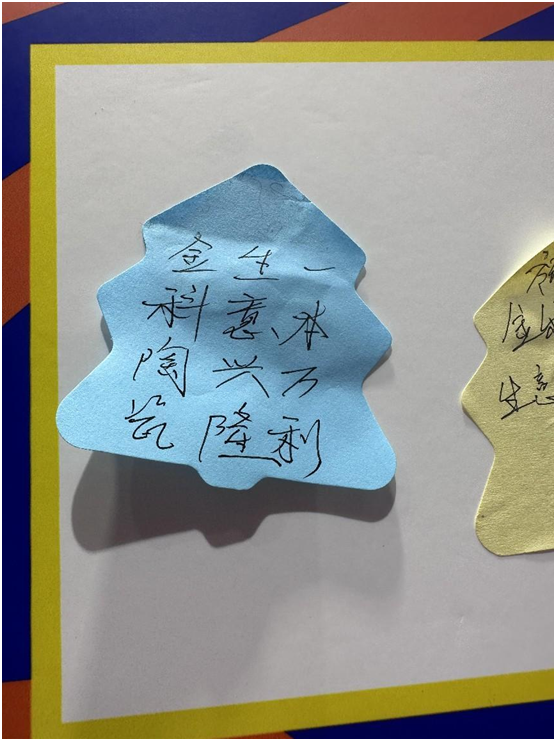 金科陶瓷
生意兴隆
一本万利
生意